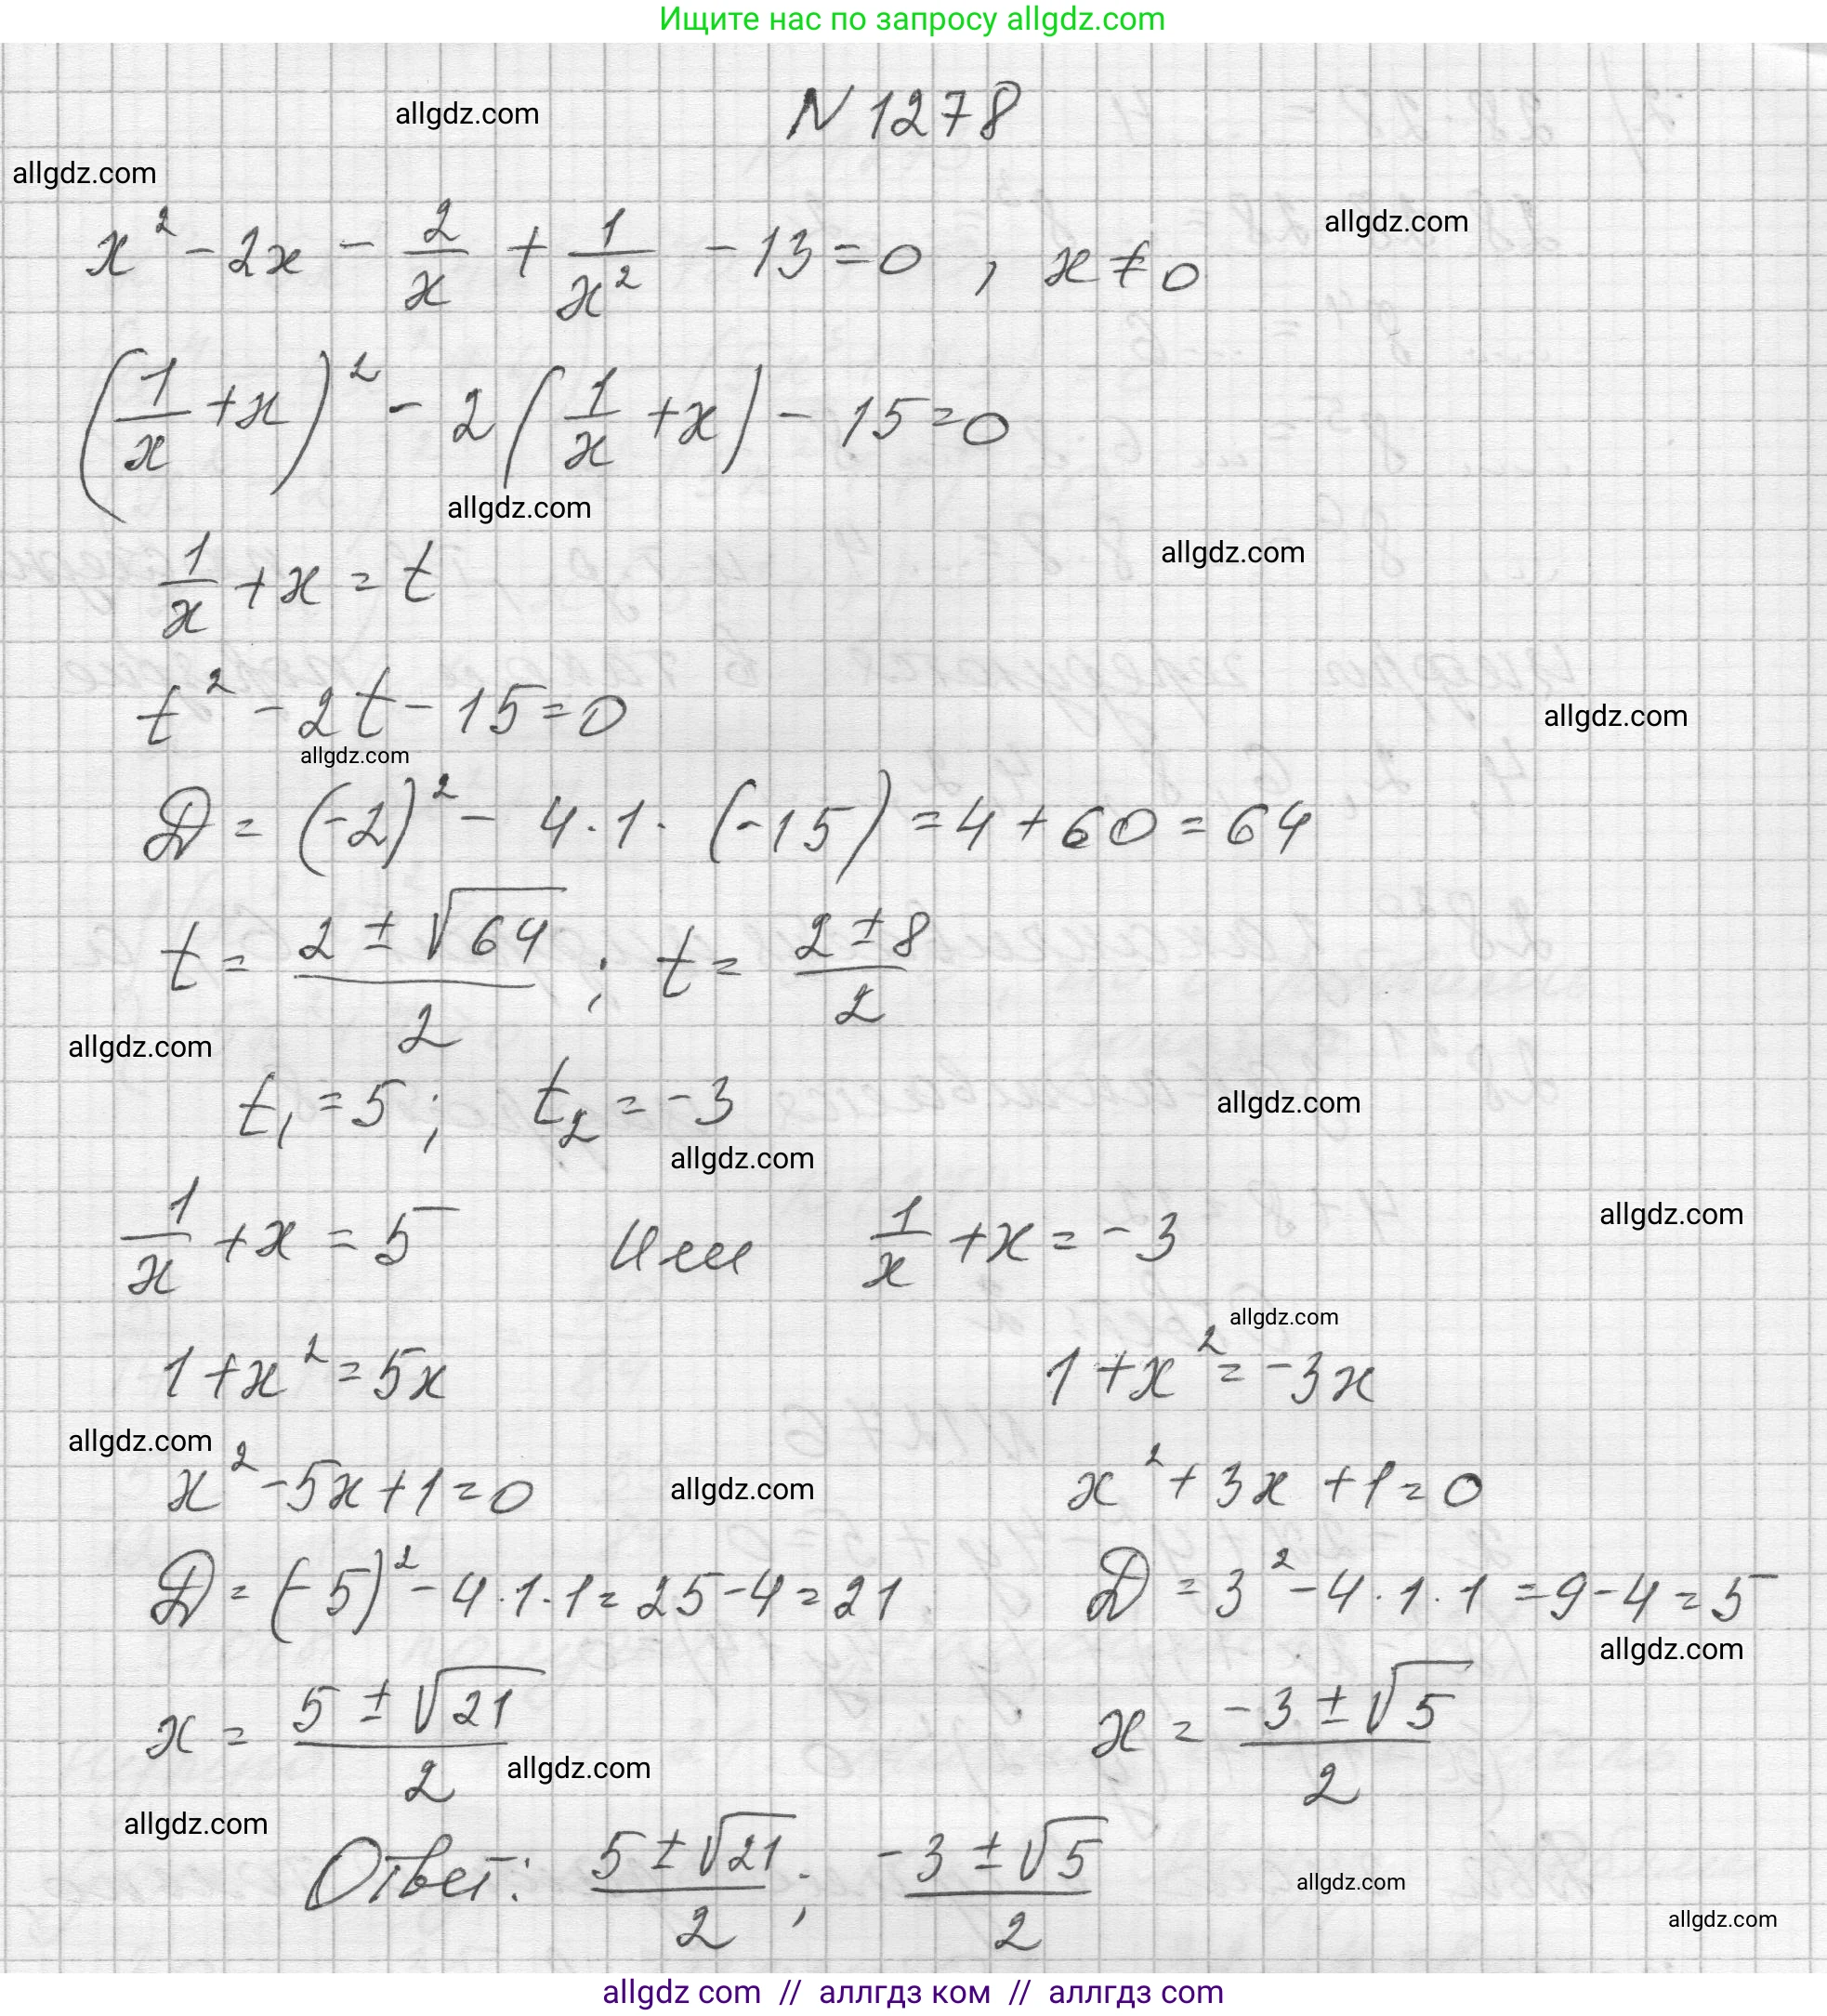 Ищите нас по запросу allgdz.com
N 1278
allgdz.com
allgdz.com
allgdz.com
x² - 2x - 2/x + 1/x² - 13 = 0 , x ≠ 0
(1/x + x)² - 2(1/x + x) - 15 = 0
allgdz.com
allgdz.com
1/x + x = t
t² - 2t - 15 = 0
allgdz.com
allgdz.com
D = (-2)² - 4·1·(-15) = 4 + 60 = 64
t = (2 ± √64)/2 ; t = (2 ± 8)/2
allgdz.com
t₁ = 5 ; t₂ = -3
allgdz.com
allgdz.com
1/x + x = 5 Или 1/x + x = -3
allgdz.com
allgdz.com
1 + x² = 5x 1 + x² = -3x
allgdz.com
x² - 5x + 1 = 0 x² + 3x + 1 = 0
allgdz.com
D = (-5)² - 4·1·1 = 25 - 4 = 21 D = 3² - 4·1·1 = 9 - 4 = 5
allgdz.com
x = (5 ± √21)/2 x = (-3 ± √5)/2
allgdz.com
allgdz.com
Ответ: (5 ± √21)/2 ; (-3 ± √5)/2
allgdz.com
allgdz.com
allgdz com // аллгдз ком // аллгдз com